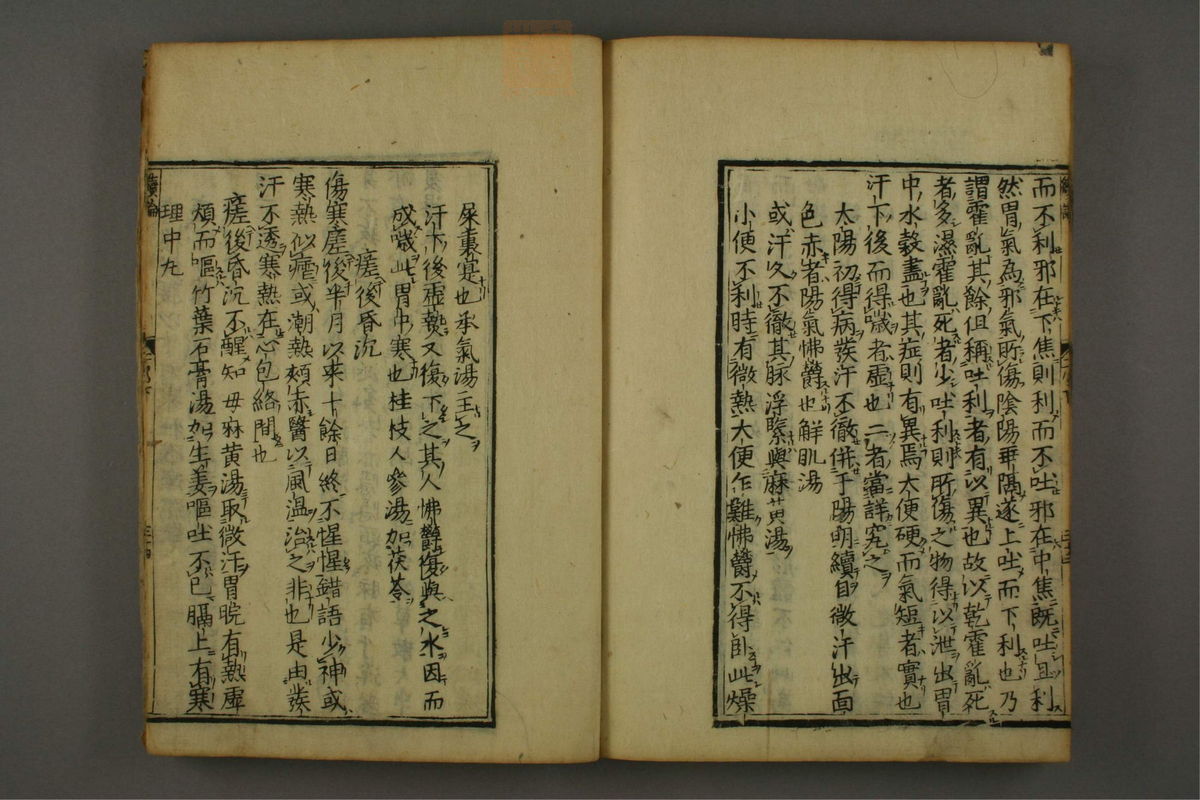 而不利邪在下焦則利而不吐邪在中焦既吐且利
然胃氣為邪氣所傷陰陽乖隔遂上吐而下利也乃
謂霍亂其餘但稱吐利者有以異也故以乾霍亂死
者多濕霍亂死者少吐利則所傷之物得以泄出胃
中水穀盡也其症則有異焉大便硬而氣短者實也
汗下後而得噦者虛也二者當詳究之
太陽初得病發汗不徹併于陽明續自微汗出面
色赤者陽氣怫欝也解肌湯
或汗久不徹其脉浮緊與麻黄湯
小便不利時有微熱大便乍難怫欝不得臥此燥
屎裏寔也承氣湯主之
汗下後虛熱又復下之其人怫欝復與之水因而
成噦此胃中寒也桂枝人參湯加茯苓
瘥後昏沉
傷寒瘥後半月以来十餘日終不惺惺錯語少神或
寒熱似瘧或潮熱頰赤醫以風温治之非也是由發
汗不透寒熱在心包絡間也
瘥後昏沉不醒知母麻黄湯取微汗胃脘有熱虛
煩而嘔竹葉石膏湯加生姜嘔吐不已膈上有寒
理中丸
續論
三十四